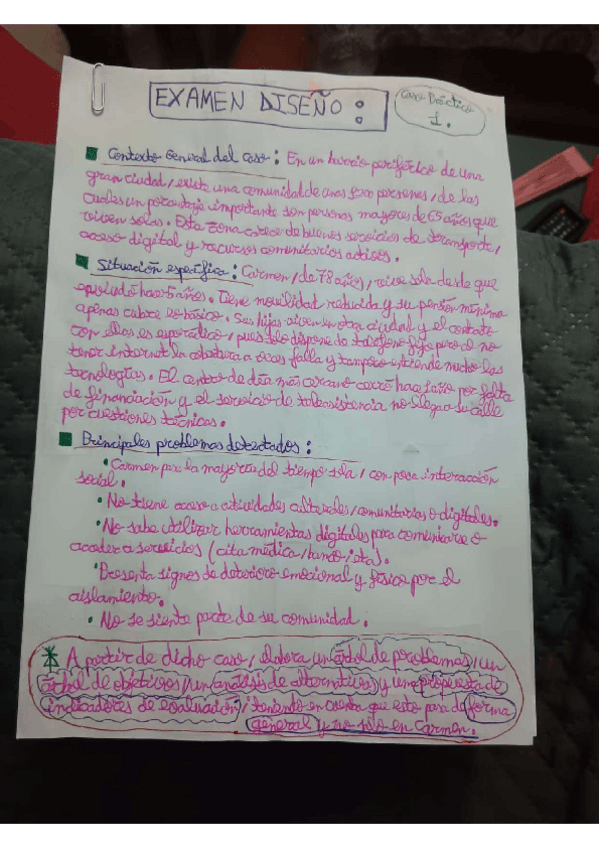 EXAMEN DISEÑO :
Caso Práctico
1.
Contexto General del caso : En un barrio periférico de una
gran ciudad, existe una comunidad de unas 5000 personas, de las
cuales un porcentaje importante son personas mayores de 65 años que
viven solas. Esta zona carece de buenos servicios de transporte,
acceso digital y recursos comunitarios activos.
Situación específica : Carmen, de 78 años, vive sola desde que
enviudó hace 5 años. Tiene movilidad reducida y su pensión mínima
apenas cubre lo básico. Sus hijas viven en otra ciudad y el contacto
con ellas es esporádico, pues solo dispone de teléfono fijo pero al no
tener internet la cobertura a veces falla y tampoco entiende mucho las
tecnologías. El centro de día más cercano cerró hace 1 año por falta
de financiación y el servicio de teleasistencia no llega a su calle
por cuestiones técnicas.
Principales problemas detectados :
• Carmen pasa la mayoría del tiempo sola, con poca interacción
social.
• No tiene acceso a actividades culturales, comunitarias o digitales.
• No sabe utilizar herramientas digitales para comunicarse o
acceder a servicios (cita médica, banco, etc).
• Presenta signos de deterioro emocional y físico por el
aislamiento.
• No se siente parte de su comunidad.
A partir de dicho caso, elabora un árbol de problemas, un
árbol de objetivos, un análisis de alternativas y una propuesta de
indicadores de evaluación, teniendo en cuenta que esto pasa de forma
general y no solo en Carmen.